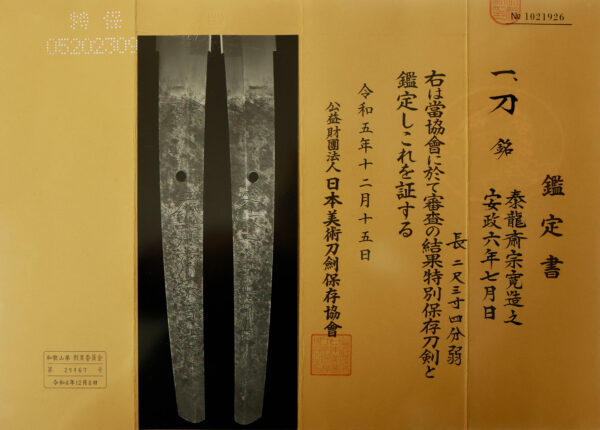 № 1021926
鑑定書
一、刀 銘 泰龍斎宗寛造之
安政六年七月日
長二尺三寸四分弱
右は當協會に於て審査の結果特別保存刀劍と
鑑定しこれを証する
令和五年十二月十五日
公益財團法人日本美術刀劍保存協會
特保
05202309
和歌山県教育委員会
第 29467 号
令和4年12月8日